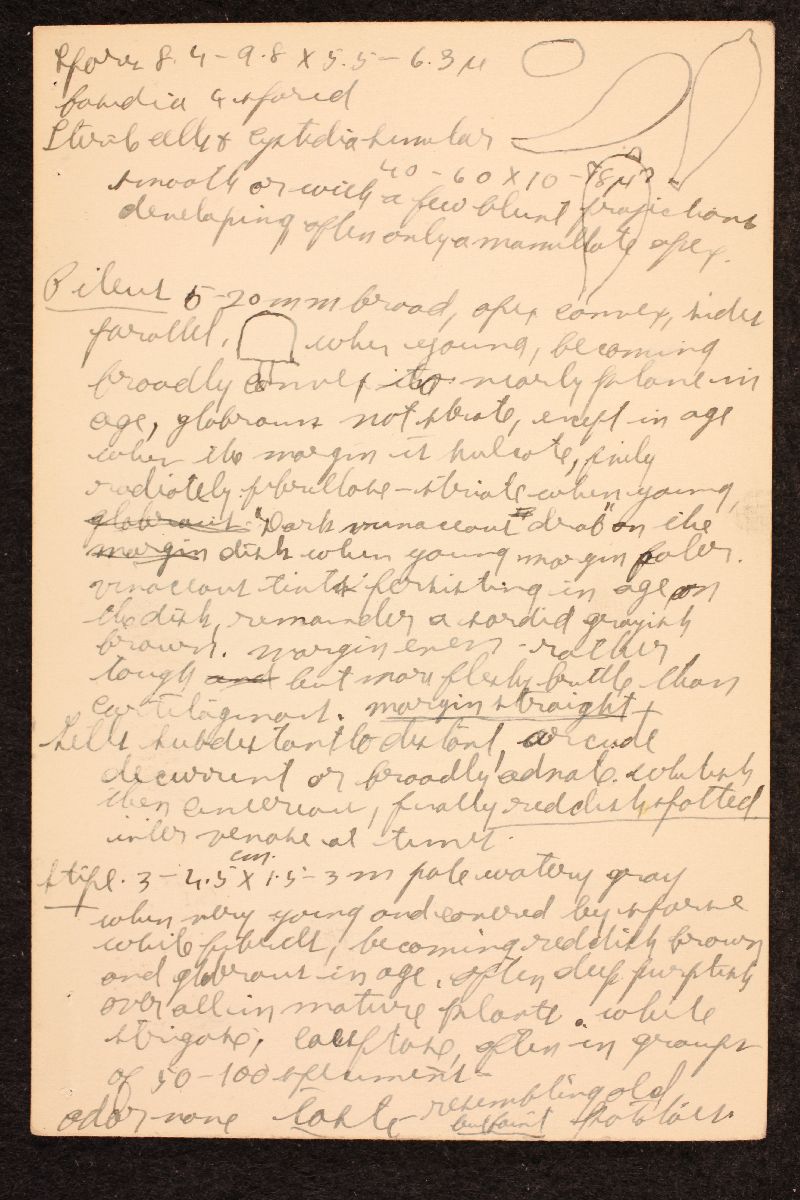 Spores 8.4 - 9.8 X 5.5 - 6.3 µ
basidia 4 spored
Ster-cells & cystidia similar
40 - 60 X 10 - 18 µ
smooth or with a few blunt projections
developing often only a mamillate apex.
Pileus 5-20 mm broad, apex convex, sides
parallel, when young, becoming
broadly convex to nearly plane in
age, glabrous not striate, except in age
when the margin is sulcate, finely
radiately fibrillose-striate when young,
glabrous "Dark vinaceous drab" on the
margin disk when young margin paler.
vinaceous tints persisting in age on
the disk, remainder a sordid grayish
brown. margin even - rather
tough and but more fleshy brittle than
cartilaginous. margin straight
Gills subdistant to distant, arcuate
decurrent or broadly adnate. whitish
then cinereous, finally reddish spotted
intervenose at times.
Stipe. 3 - 4.5 cm. X 1.5 - 3 m pale watery gray
when very young and covered by sparse
white fibrils, becoming reddish brown
and glabrous in age, often deep purplish
over all in mature plants. white
strigose, caespitose, often in groups
of 50-100 specimens -
odor none taste resembling old
but faint potatoes.